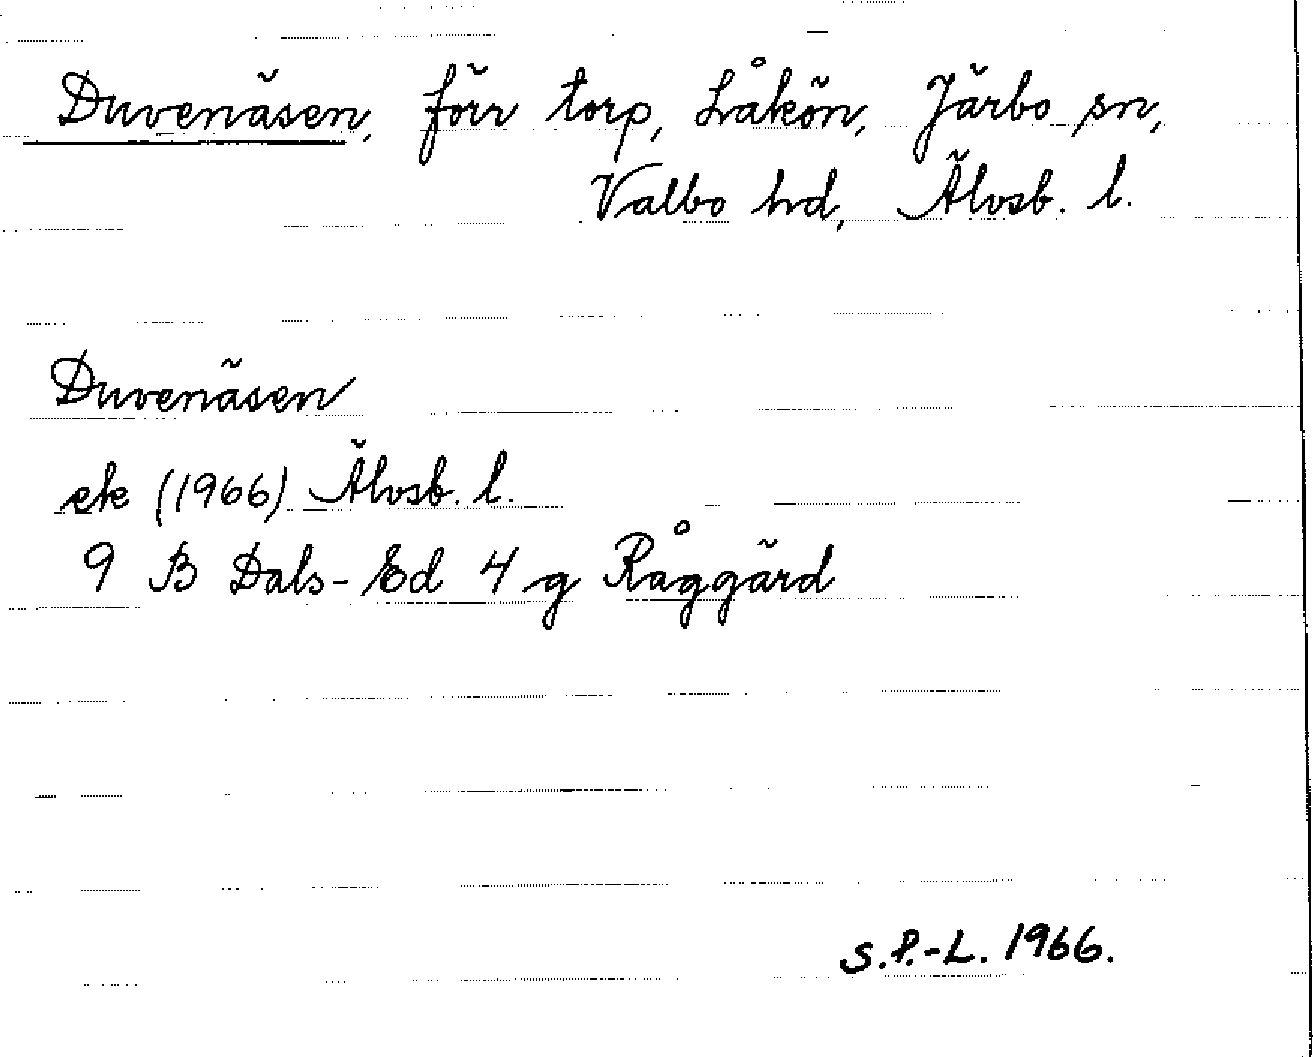 Duvenäsen, förr torp, Låkön, Järbo sn,
Valbo hd, Älvsb. l.
Duvenäsen
ek (1966) Älvsb. l.
9 B Dals-Ed 4 g Råggärd
S.P.-L. 1966.